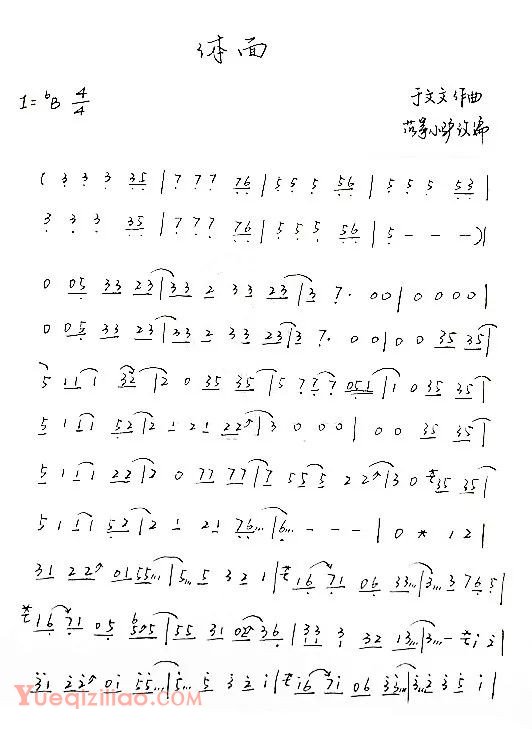 体面
1=♭B 4/4
于文文 作曲
小驴改编
( 3 3 3 35 | 7 7 7 76 | 5 5 5 56 | 5 5 5 53 |
3 3 3 35 | 7 7 7 76 | 5 5 5 56 | 5 - - - ) |
0 05 33 23 | 33 2 33 23 | 3 7· 00 | 0 0 0 0 |
0 05 33 23 | 33 2 33 23 | 3 7· 00 | 0 0 35 35 |
5 11 1 32 | 2 0 35 35 | 5 7 7 7 051 | 1 0 35 35 |
5 1 1 1 52 | 2 1 21 22 | 3 0 0 0 | 0 0 35 35 |
5 1 1 1 22 | 2 0 77 77 | 7 55 5 22 | 3 0 35 35 |
5 1 1 1 52 | 2 1 21 76... | 6... - - - | 0 * 1 2 |
31 22 01 55... | 5... 5 3 2 1 | 16 71 06 33... | 3... 3 76 5 |
16 71 05 5 5 | 55 31 02 36 | 33 3 32 13... | 3... - 1 1 |
31 22 01 55... | 5... 5 3 2 1 | 16 71 06 33... | 3... 2 3 5 1 |
Yueqiziliao.com